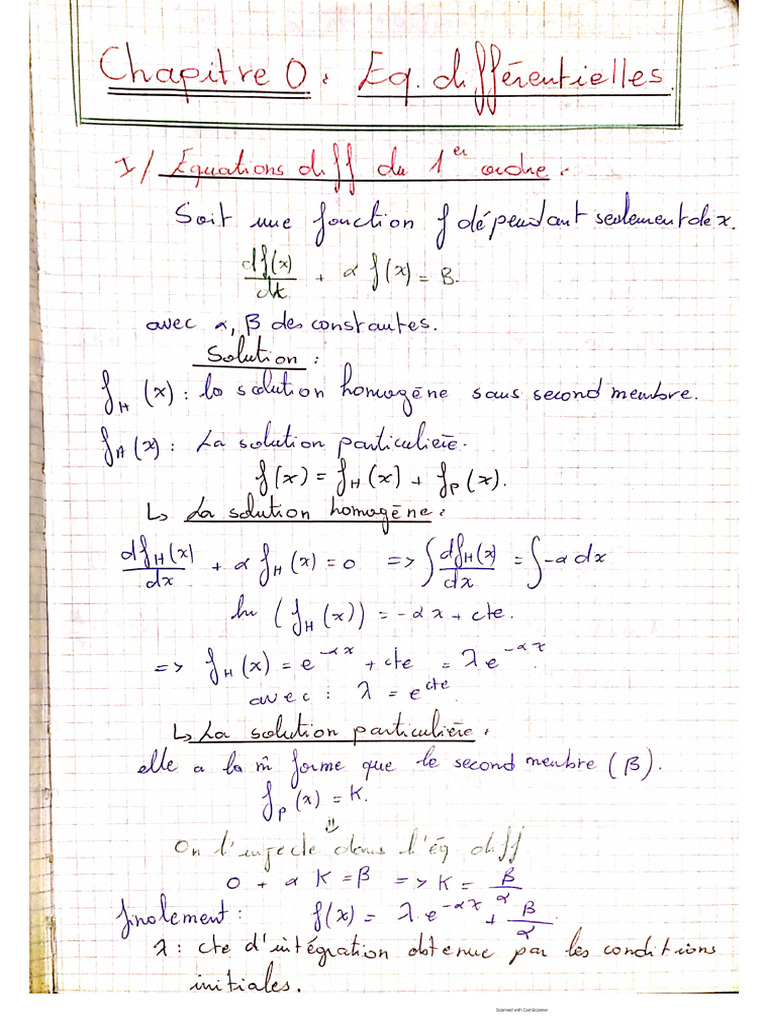 Chapitre 0 : Eq. différentielles.
I/ Equations diff du 1er ordre :
Soit une fonction f dépendant seulement de x.
df(x)/dt + α f(x) = β.
avec α, β des constantes.
Solution :
fH(x) : la solution homogène sans second membre.
fA(x) : La solution particulière.
f(x) = fH(x) + fP(x).
↳ La solution homogène :
dfH(x)/dx + α fH(x) = 0 => ∫ dfH(x)/dx = ∫ -α dx
ln (fH(x)) = -αx + cte.
=> fH(x) = e^-αx + cte = λ e^-αx.
avec : λ = e^cte
↳ La solution particulière :
elle a la m̂ forme que le second membre (β).
fP(x) = K.
On l'injecte dans l'éq diff
0 + α K = β => K = β/α
finalement : f(x) = λ.e^-αx + β/α.
λ : cte d'intégration obtenue par les conditions
initiales.
Scanned with CamScanner